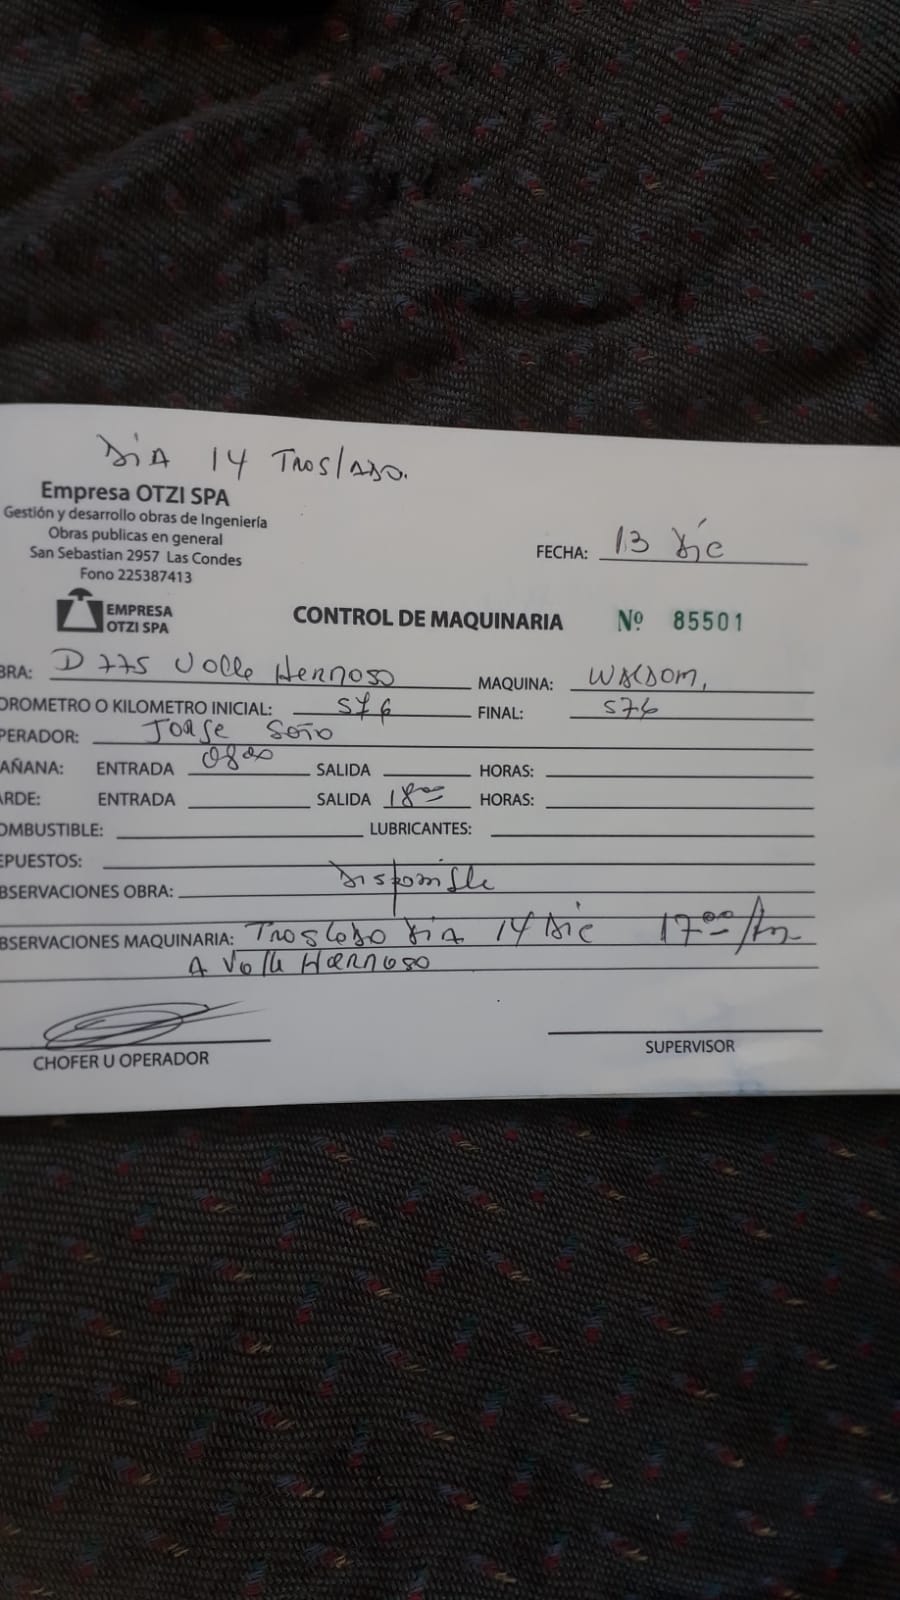 DIA 14 TRASLADO.
Empresa OTZI SPA
Gestión y desarrollo obras de Ingeniería
Obras publicas en general
San Sebastian 2957 Las Condes
Fono 225387413
FECHA: 13 Dic
EMPRESA
OTZI SPA
CONTROL DE MAQUINARIA Nº 85501
BRA: D 775 Valle Hermoso MAQUINA: WALDOM,
OROMETRO O KILOMETRO INICIAL: 576 FINAL: 576
PERADOR: JORGE SOTO
AÑANA: ENTRADA 0800 SALIDA HORAS:
ARDE: ENTRADA SALIDA 18ºº HORAS:
OMBUSTIBLE: LUBRICANTES:
EPUESTOS:
BSERVACIONES OBRA: Disponible
BSERVACIONES MAQUINARIA: Traslado DIA 14 Dic 17ºº
A Valle Hermoso
CHOFER U OPERADOR SUPERVISOR